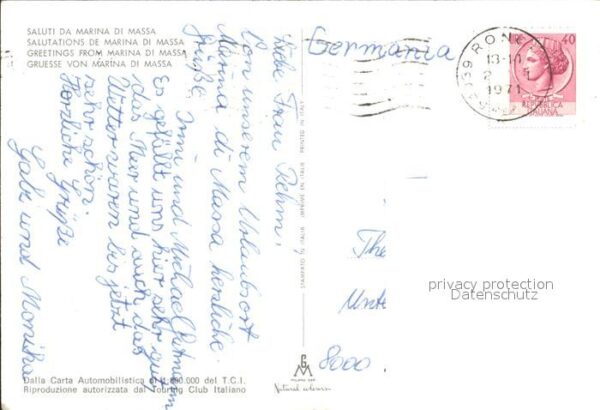 SALUTI DA MARINA DI MASSA
SALUTATIONS DE MARINA DI MASSA
GREETINGS FROM MARINA DI MASSA
GRUESSE VON MARINA DI MASSA
Germania
13-10
2
1971
40
REPUBBLICA
ITALIANA
Liebe Frau Behm,
Von unserem Urlaubsort
Marina di Massa herzliche
Grüße
Irmi und Michael
Es gefällt uns hier sehr gut,
das Meer und auch das
Wetter waren bis jetzt
sehr schön.
Herzliche Grüße
Gabi und Monika
STAMPATO IN ITALIA IMPRIMÉ EN ITALIE PRINTED IN ITALY
The
Unte
8000
privacy protection
Datenschutz
Dalla Carta Automobilistica al 200.000 del T.C.I.
Riproduzione autorizzata dal Touring Club Italiano
Natural colour